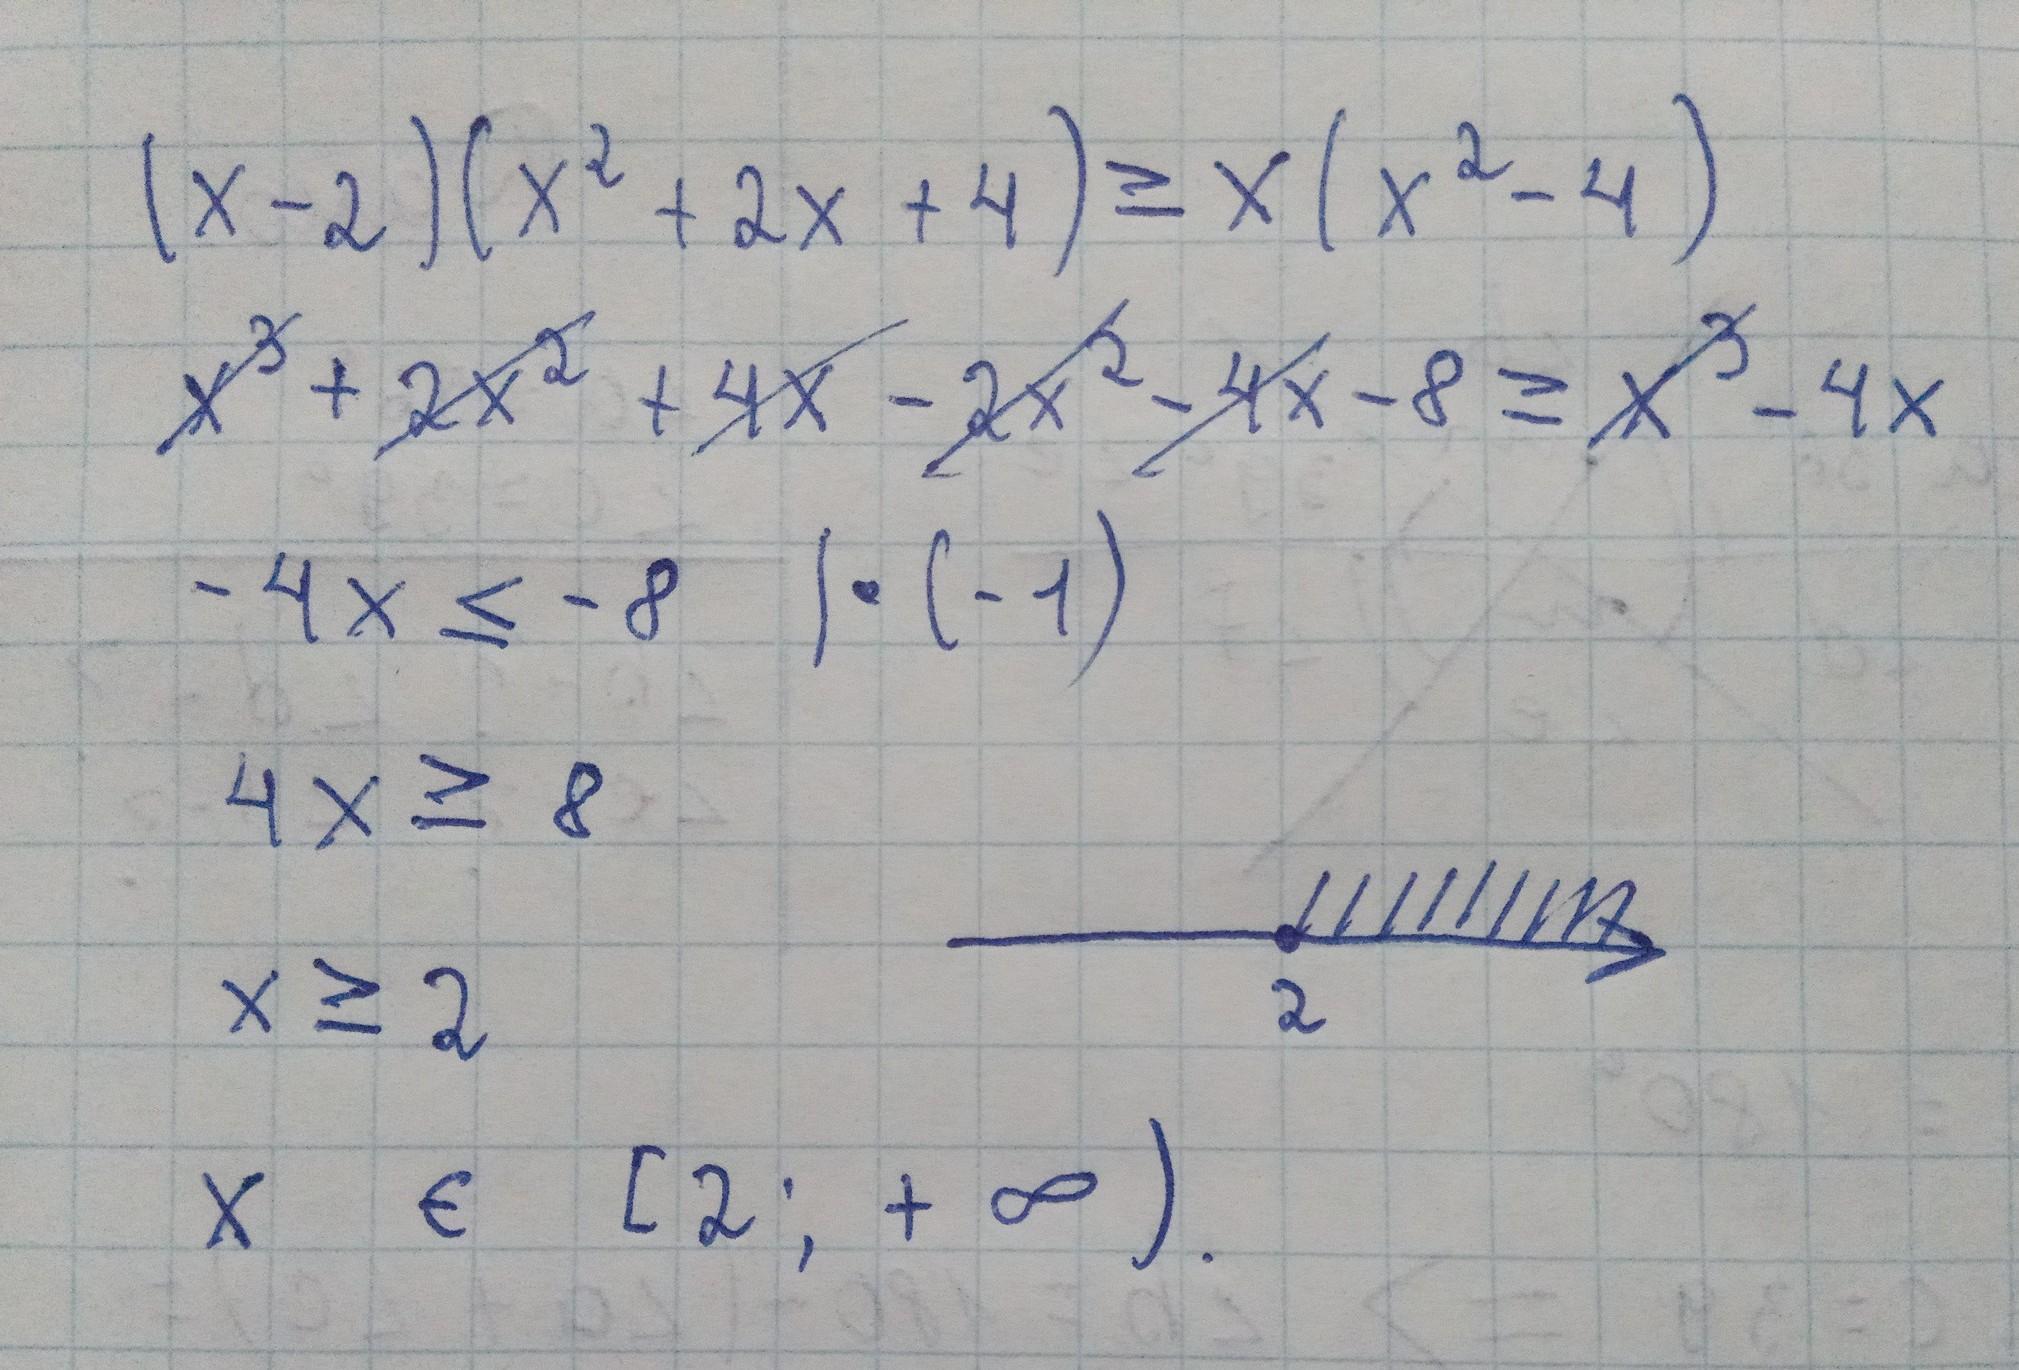 (x-2)(x² + 2x + 4) ≥ x(x² - 4)
x³ + 2x² + 4x - 2x² - 4x - 8 ≥ x³ - 4x
-4x ≤ -8 | · (-1)
4x ≥ 8
x ≥ 2
2
x ∈ [2; + ∞).